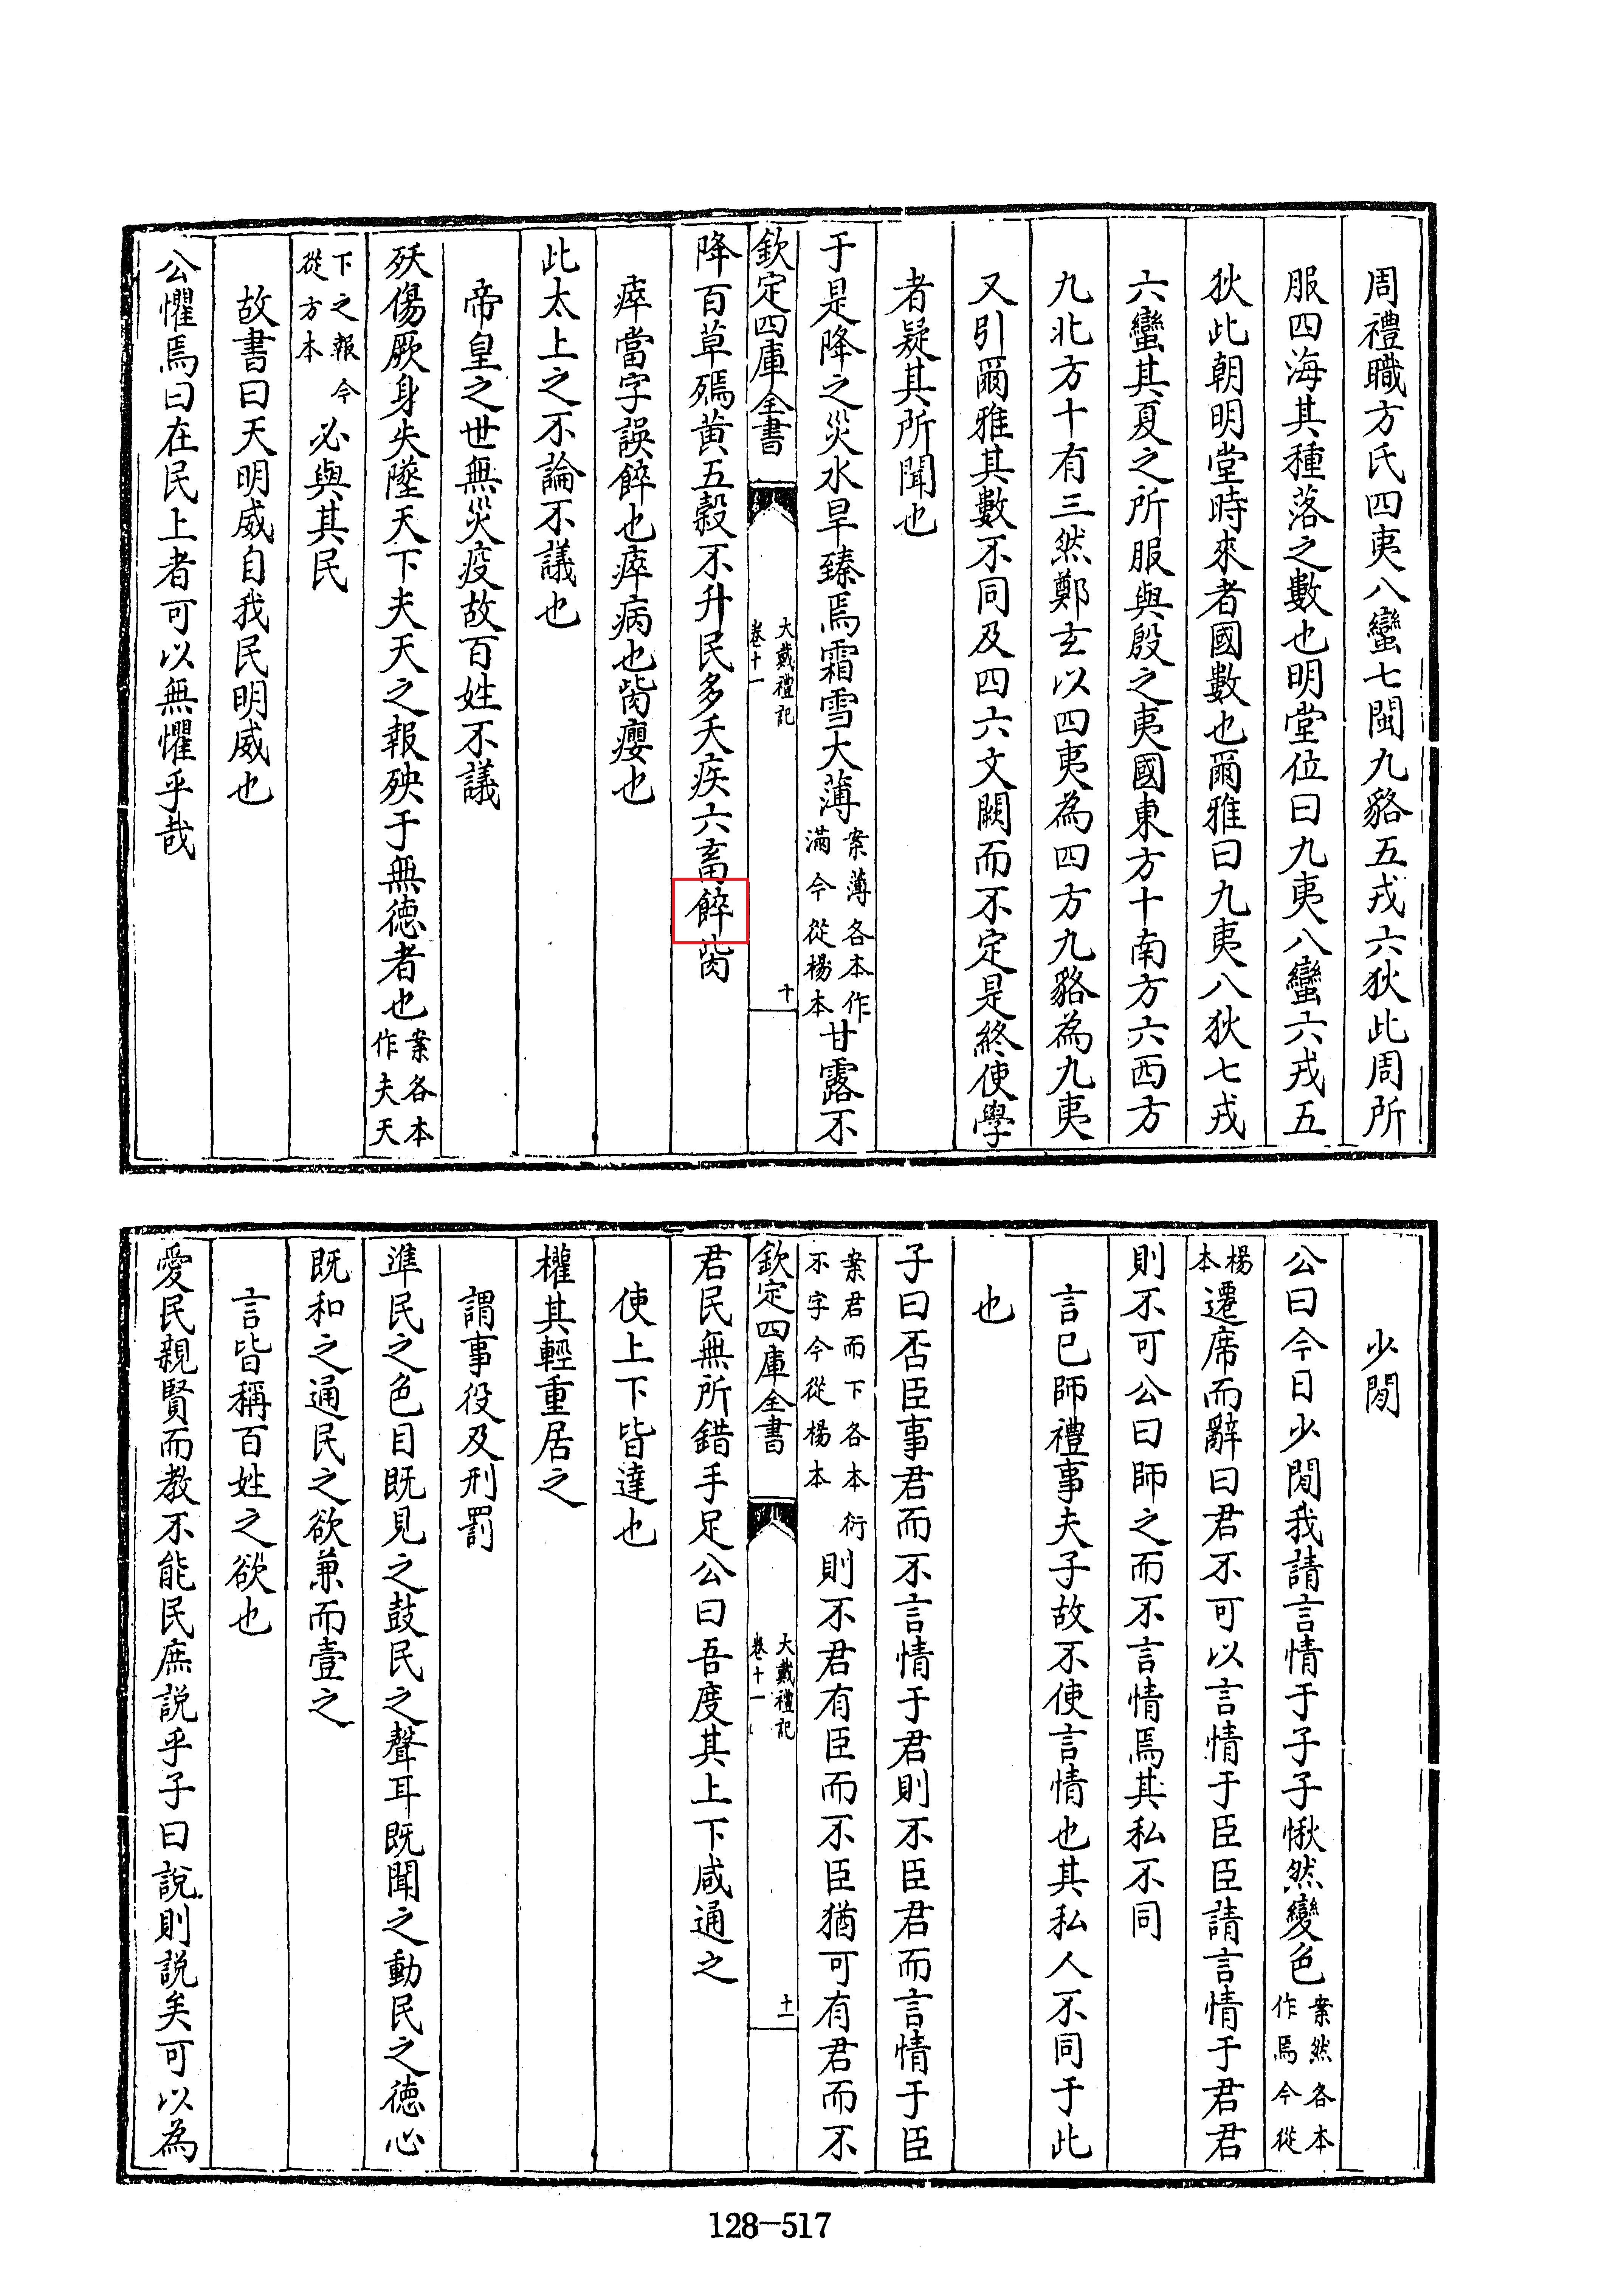 周禮職方氏四夷八蠻七閩九貉五戎六狄此周所
服四海其種落之數也明堂位曰九夷八蠻六戎五
狄此朝明堂時來者國數也爾雅曰九夷八狄七戎
六蠻其夏之所服與殷之夷國東方十南方六西方
九北方十有三然鄭玄以四夷為四方九貉為九夷
又引爾雅其數不同及四六文闕而不定是終使學
者疑其所聞也
于是降之災水旱臻焉霜雪大薄案薄各本作滿今從楊本甘露不
欽定四庫全書
大戴禮記
卷十一
十
降百草殰黄五穀不升民多夭疾六畜䭞胔
瘁當字誤䭞也瘁病也胔癭也
此太上之不論不議也
帝皇之世無災疫故百姓不議
殀傷厥身失墬天下夫天之報殃于無德者也案各本作夫天
下之報今從方本必與其民
故書曰天明威自我民明威也
公懼焉曰在民上者可以無懼乎哉
少閒
公曰今日少閒我請言情于子子愀然變色案然各本作焉今從
楊本遷席而辭曰君不可以言情于臣臣請言情于君君
則不可公曰師之而不言情焉其私不同
言已師禮事夫子故不使言情也其私人不同于此
也
子曰否臣事君而不言情于君則不臣君而言情于臣
案君而下各本衍不字今從楊本則不君有臣而不臣猶可有君而不
欽定四庫全書
大戴禮記
卷十一
十一
君民無所錯手足公曰吾度其上下咸通之
使上下皆達也
權其輕重居之
謂事役及刑罰
準民之色目既見之鼓民之聲耳既聞之動民之德心
既和之通民之欲兼而壹之
言皆稱百姓之欲也
愛民親賢而教不能民庶説乎子曰說則説矣可以為
128-517